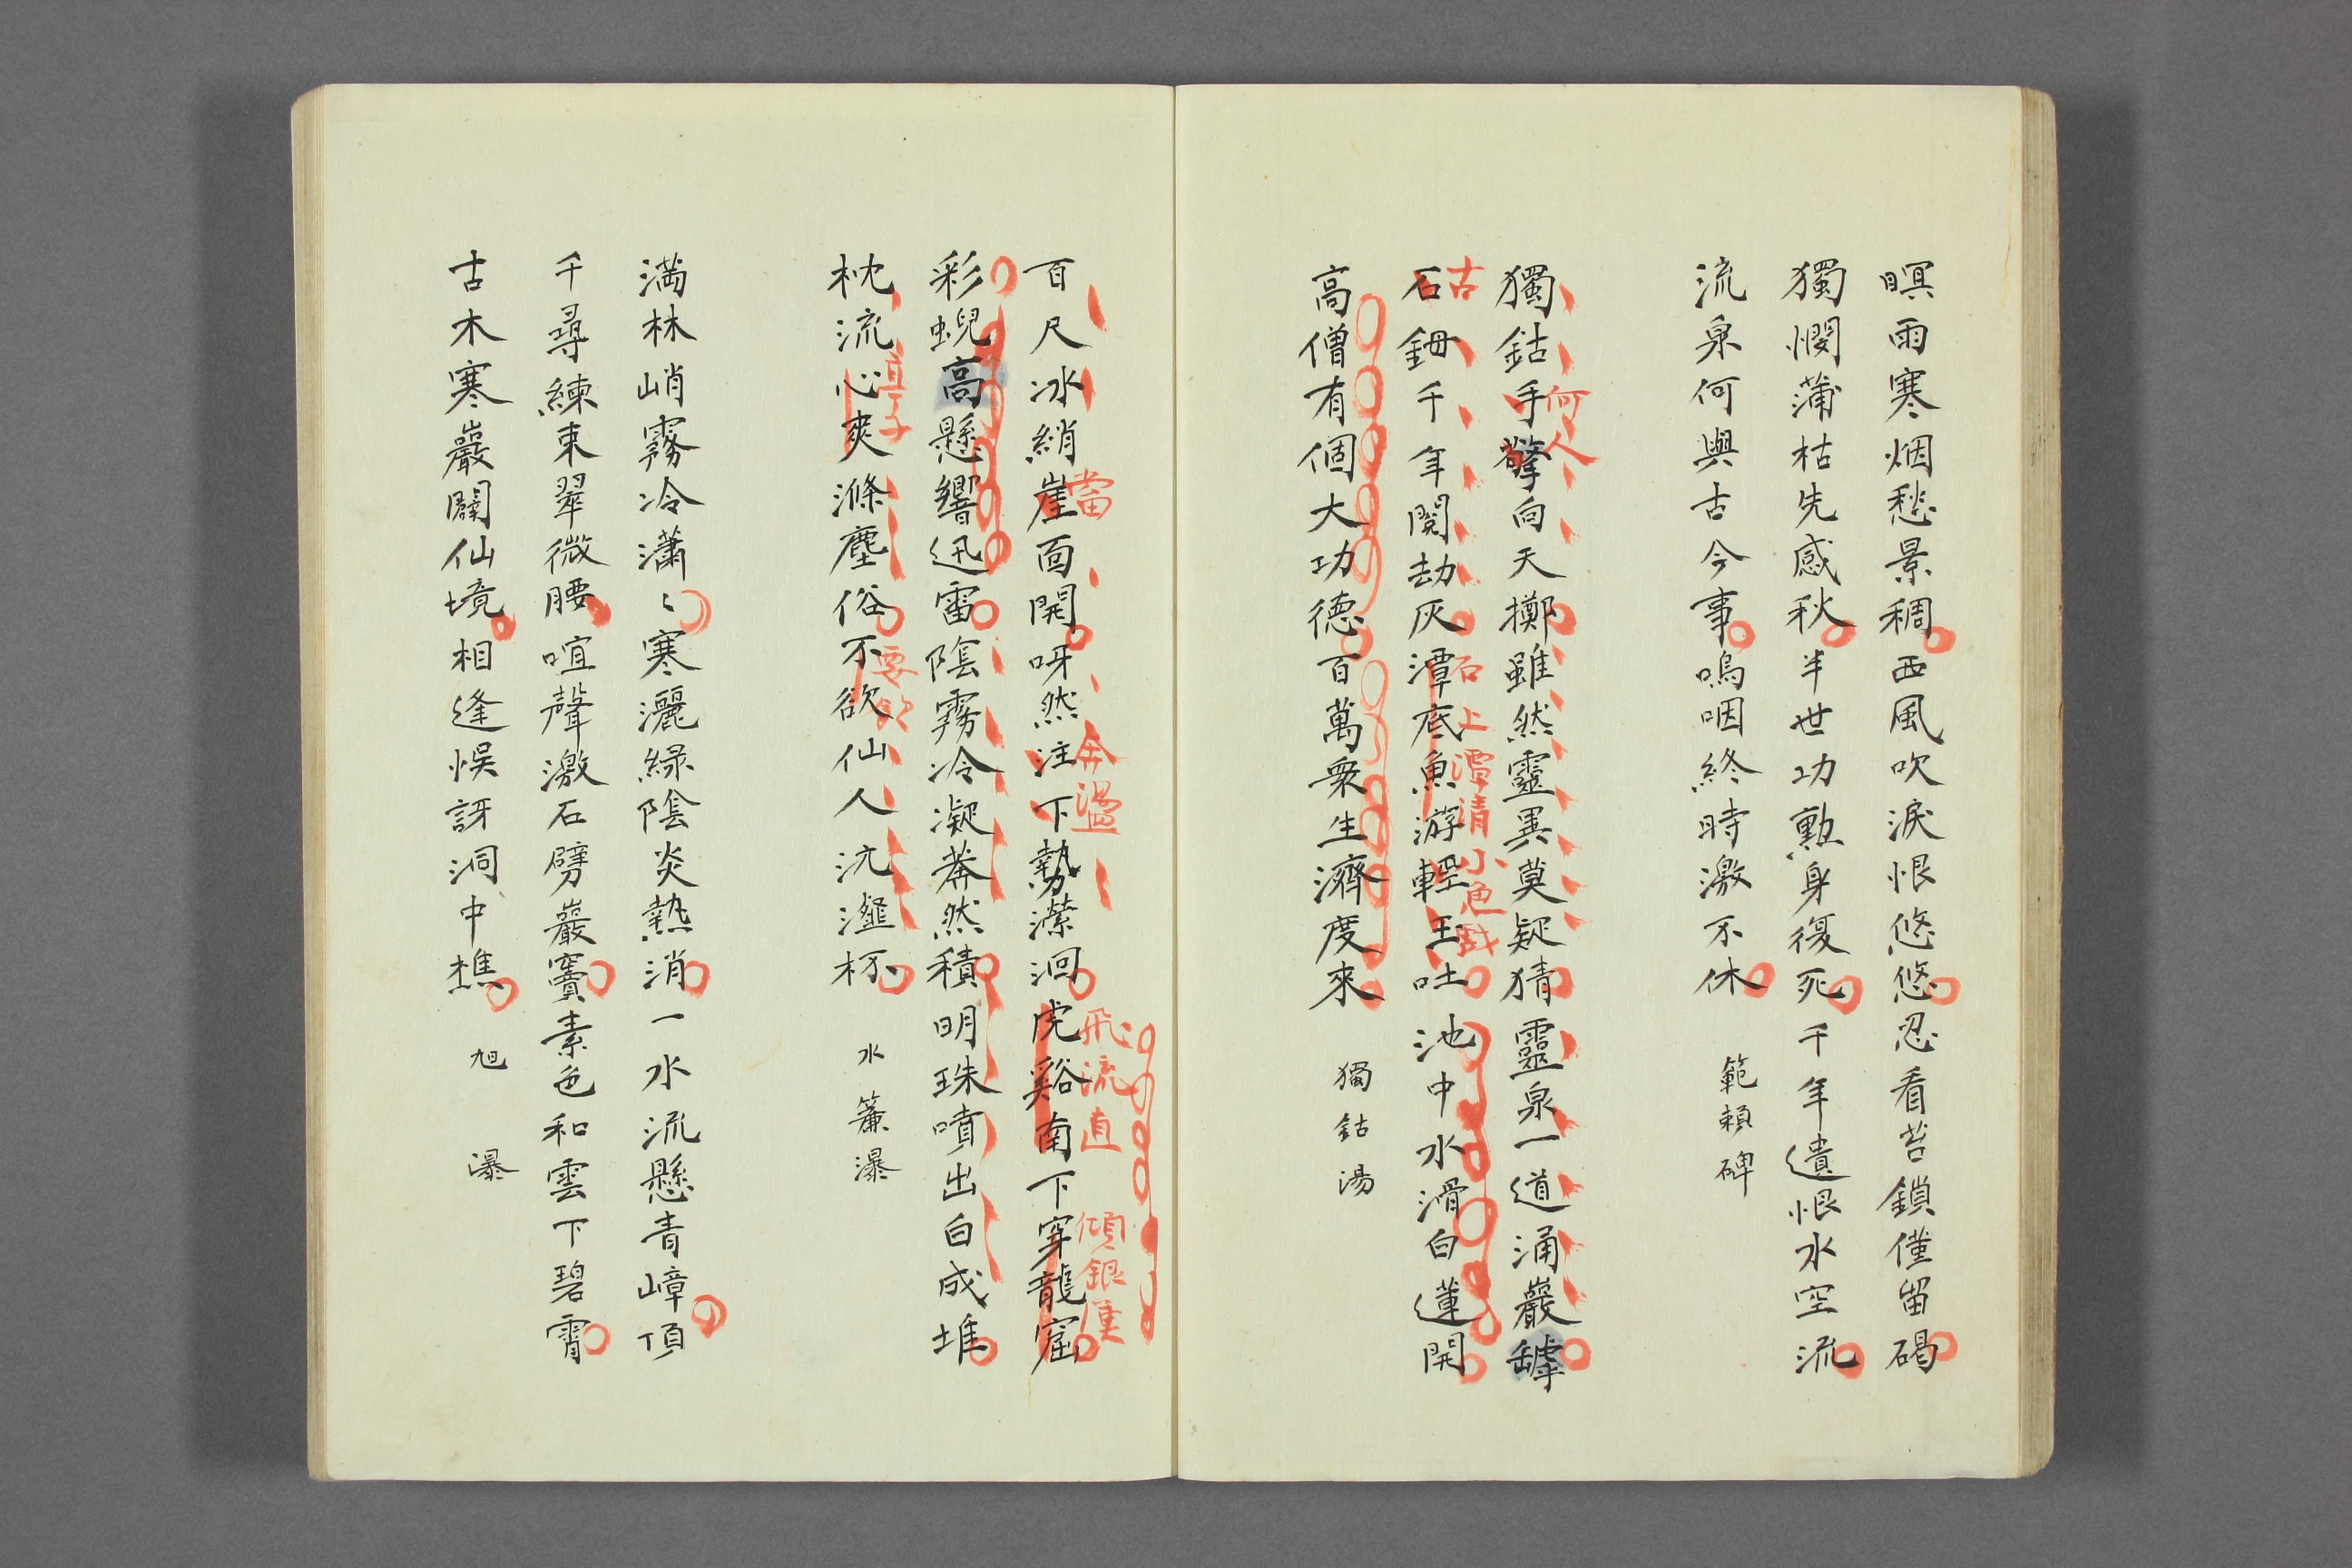 暝雨寒烟愁景稠西風吹淚恨悠悠忍看苔鎖僅留碣
獨憫蒲枯先感秋半世功勲身復死千年遺恨水空流
流泉何與古今事嗚咽終時激不休
範頼碑
何人
獨鈷手擎向天擲雖然靈異莫疑猜靈泉一道涌巖罅
古
石上潭清小魚戲
石鉧千年閱劫灰潭底魚游輕玉吐池中水滑白蓮開
高僧有個大功德百萬衆生濟度來
獨鈷湯
當
奔溫
飛流直
傾銀漢
百尺冰綃崖面開呀然注下勢瀠洄虎谿南下穿龍窟
彩蜺高懸響迅雷陰霧冷凝莽然積明珠噴出白成堆
直子
要欽
枕流心爽滌塵俗不欲仙人沆瀣杯
水簾瀑
満林峭霧冷瀟〻寒灑緑陰炎熱消一水流懸青嶂頂
千尋練束翠微腰喧聲激石劈巖竇素色和雲下碧霄
古木寒巖闢仙境相逢悞訝洞中樵
旭瀑